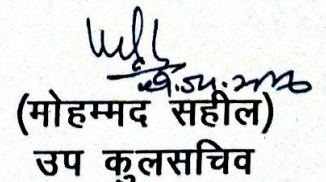 (मोहम्मद सहील)
उप कुलसचिव